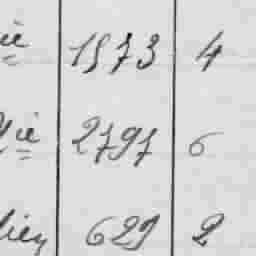 ie 1573 4
ie 2797 6
lien 629 2